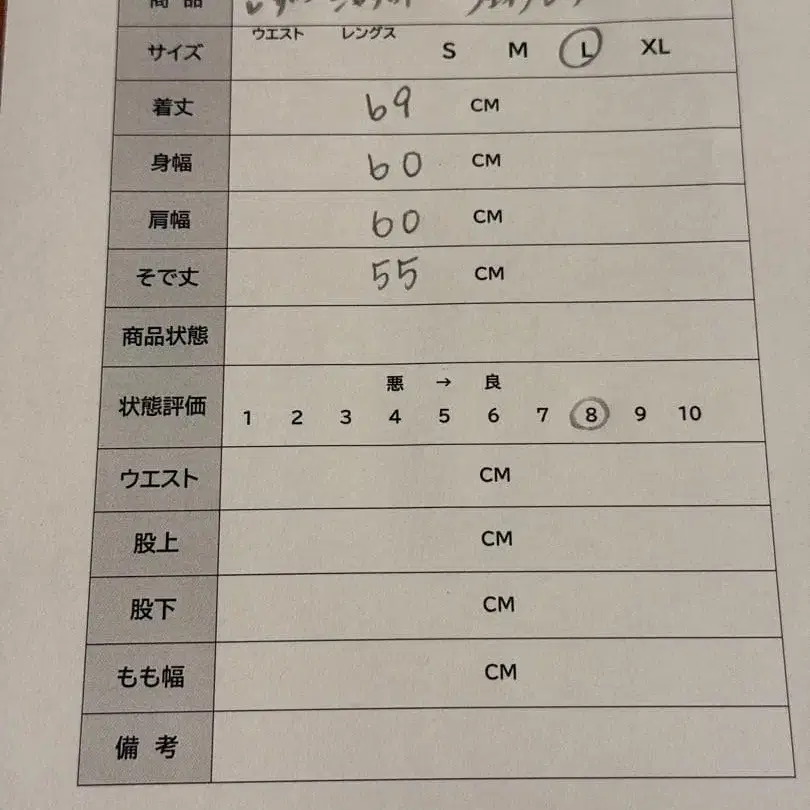 商品
サイズ ウエスト レングス S M L XL
着丈 69 CM
身幅 60 CM
肩幅 60 CM
そで丈 55 CM
商品状態
悪 → 良
状態評価 1 2 3 4 5 6 7 8 9 10
ウエスト CM
股上 CM
股下 CM
もも幅 CM
備考